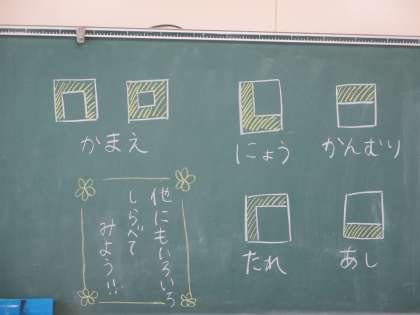 かまえ
にょう
かんむり
たれ
あし
他にもいろいろ
しらべて
みよう!!